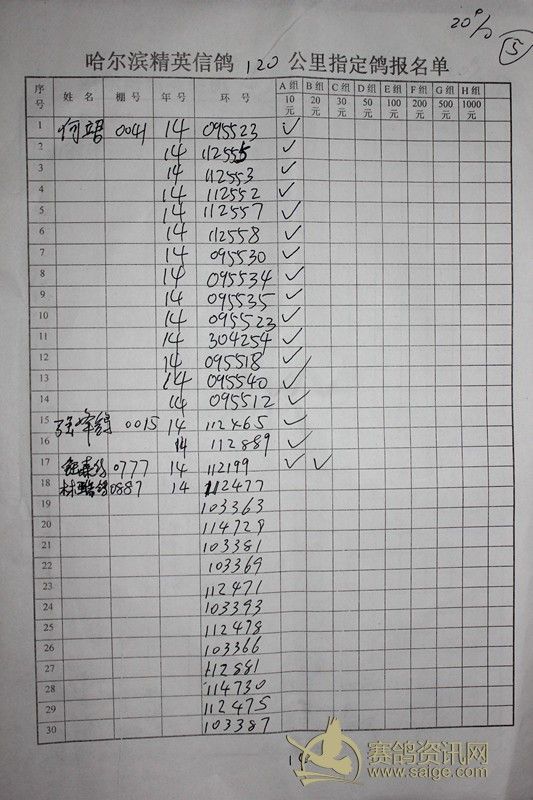 20
5
哈尔滨精英信鸽 120 公里指定鸽报名单
序号 姓名 棚号 年号 环号 A组 10元 B组 20元 C组 30元 D组 50元 E组 100元 F组 200元 G组 500元 H组 1000元
1 0041 14 095523 ✓
2 14 112555 ✓
3 14 112553 ✓
4 14 112552 ✓
5 14 112557 ✓
6 14 112558 ✓
7 14 095530 ✓
8 14 095534 ✓
9 14 095535 ✓
10 14 095523 ✓
11 14 304254 ✓
12 14 095518 ✓
13 14 095540 ✓
14 14 095512 ✓
15 0015 14 112465 ✓
16 14 112889 ✓
17 0777 14 112199 ✓ ✓
18 0887 14 112477
19 103363
20 114729
21 103381
22 103369
23 112471
24 103393
25 112478
26 103366
27 112881
28 114730
29 112475
30 103387
赛鸽资讯网
www.saige.com